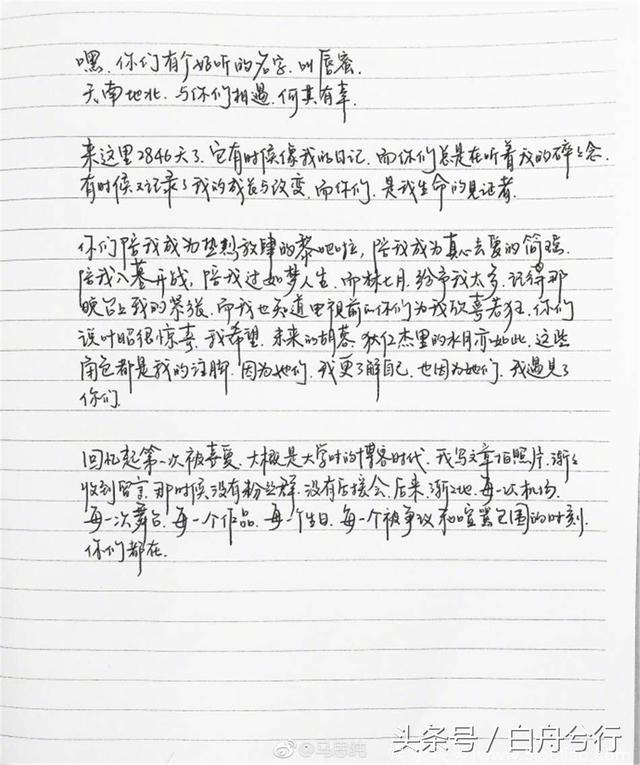 嘿，你们有个好听的名字，叫唇蜜。
天南地北，与你们相遇，何其有幸。
来这里2846天了，它有时候像我的日记，而你们总是在听着我的碎碎念。
有时候又记录了我的成长与改变，而你们，是我生命的见证者。
你们陪我成为热烈放肆的黎吧啦，陪我成为真心去爱的简瑶。
陪我入墓开战，陪我过如梦人生，而林七月，给予我太多，记得那
晚台上我的紧张，而我也知道电视前的你们为我欣喜若狂，你们
说叶昭很惊喜，我希望，未来的胡蓉，狄仁杰里的水月亦如此，这些
角色都是我的注脚，因为她们，我更了解自己，也因为她们，我遇见了
你们。
回忆起第一次被喜爱，大概是大学时的博客时代，我写文章拍照片，渐渐
收到留言，那时候没有粉丝群，没有后援会，后来，渐渐地，每一次机场，
每一次舞台，每一个作品，每一个生日，每一个被争议和喧嚣包围的时刻，
你们都在。
@马思纯
头条号／白舟兮行